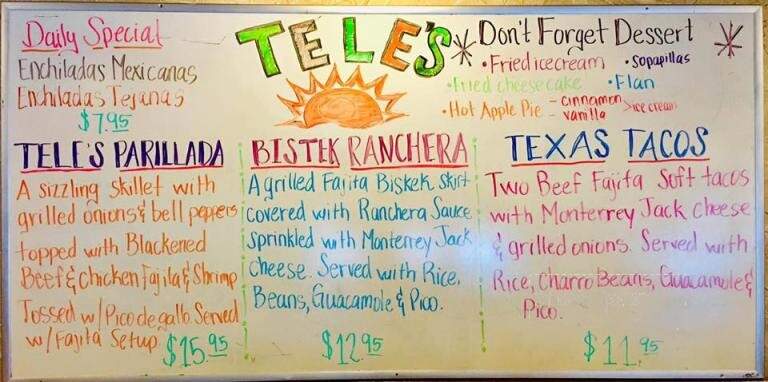 TELE'S
Daily Special
Enchiladas Mexicanas
Enchiladas Tejanas
$7.95
Don't Forget Dessert
•Fried ice cream •Sopapillas
•Fried cheesecake •Flan
•Hot Apple Pie - cinnamon
vanilla >ice cream
TELE'S PARILLADA
A sizzling skillet with
grilled onions & bell peppers
topped with Blackened
Beef & Chicken Fajita & Shrimp
Tossed w/ Pico de gallo. Served
w/ Fajita Setup
$15.95
BISTEK RANCHERA
A grilled Fajita Biskek skirt
covered with Ranchera Sauce
sprinkled with Monterrey Jack
Cheese. Served with Rice,
Beans, Guacamole & Pico.
$12.95
TEXAS TACOS
Two Beef Fajita Soft tacos
with Monterrey Jack Cheese
& grilled onions. Served with
Rice, Charro Beans, Guacamole &
Pico.
$11.95